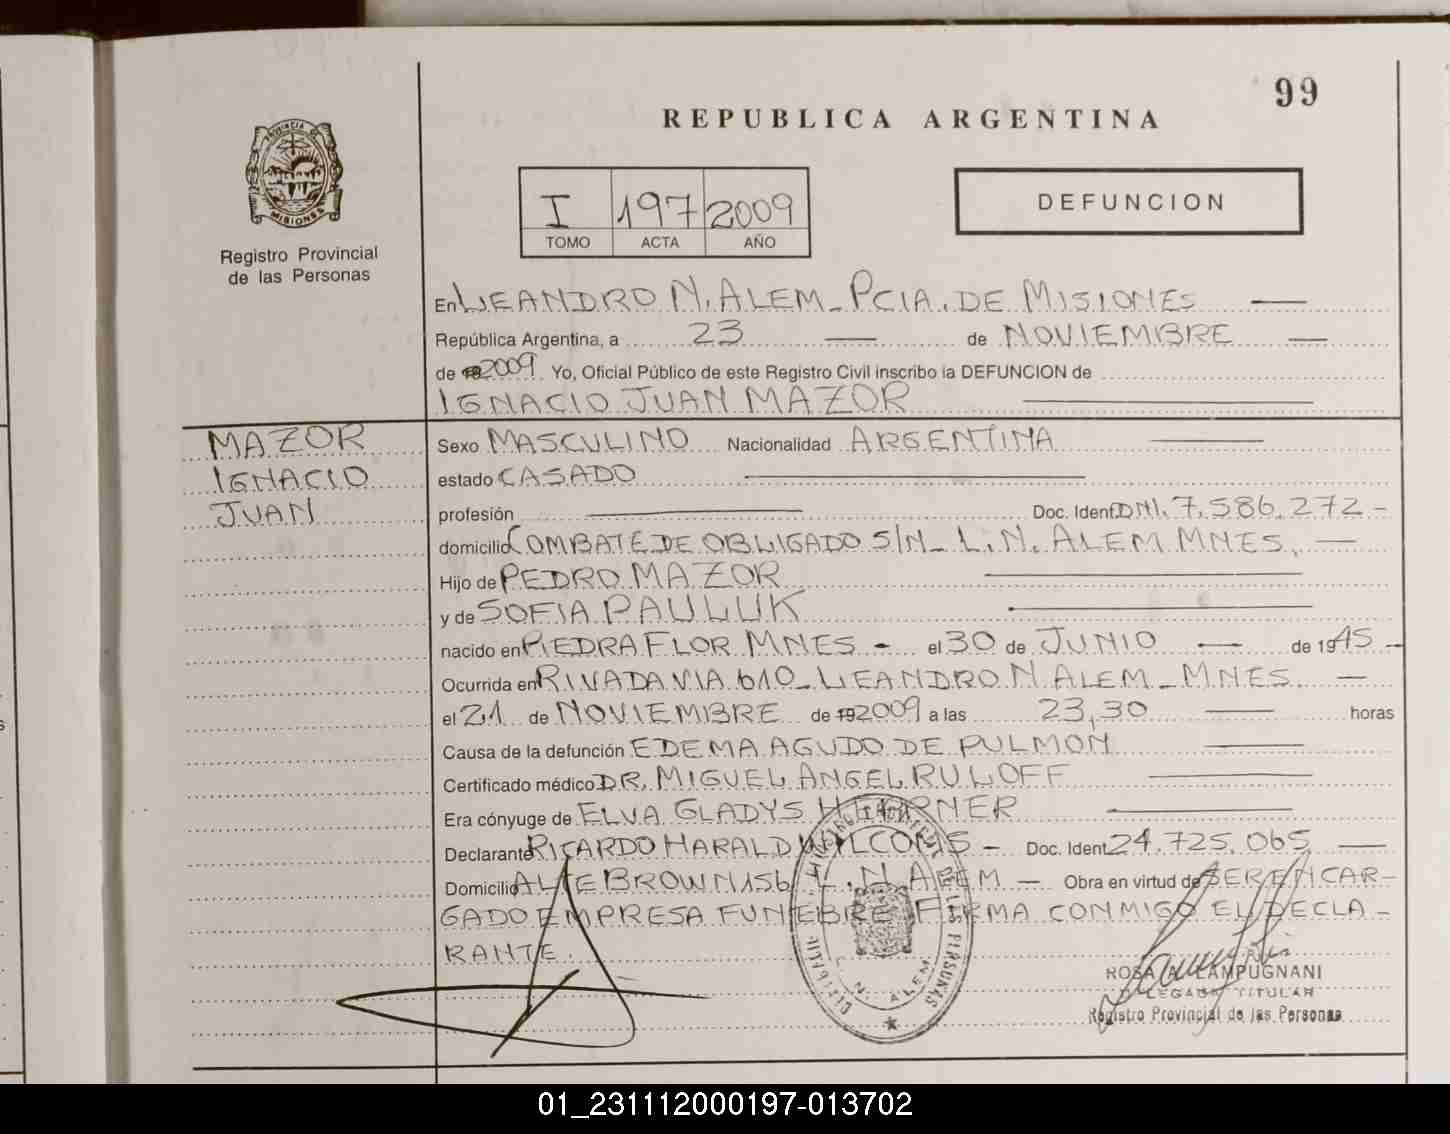 99
REPUBLICA ARGENTINA
PROVINCIA DE
MISIONES
Registro Provincial
de las Personas
I 197 2009
TOMO ACTA AÑO
DEFUNCION
En LEANDRO N. ALEM - PCIA. DE MISIONES
República Argentina, a 23 de NOVIEMBRE
de 2009 Yo, Oficial Público de este Registro Civil inscribo la DEFUNCION de
IGNACIO JUAN MAZOR
MAZOR
IGNACIO
JUAN
Sexo MASCULINO Nacionalidad ARGENTINA
estado CASADO
profesión Doc. Ident. DNI. 7.586.272 -
domicilio COMBATE DE OBLIGADO S/N - L. N. ALEM MNES.
Hijo de PEDRO MAZOR
y de SOFIA PAULUK
nacido en PIEDRA FLOR MNES - el 30 de JUNIO de 1945 --
Ocurrida en RIVADAVIA 610 - LEANDRO N ALEM - MNES
el 21 de NOVIEMBRE de 192009 a las 23,30 horas
Causa de la defunción EDEMA AGUDO DE PULMON
Certificado médico DR. MIGUEL ANGEL RULOFF
Era cónyuge de ELVA GLADYS
Declarante RICARDO HARALD Doc. Ident. 24.725.065
Domicilio ALTE BROWN 156 L. N ALEM - Obra en virtud de SER ENCAR-
GADO EMPRESA FUNEBRE FIRMA CONMIGO EL DECLA-
RANTE.
L. N. ALEM
ROSA A. LAMPUGNANI
TITULAR
Registro Provincial de las Personas
01_231112000197-013702